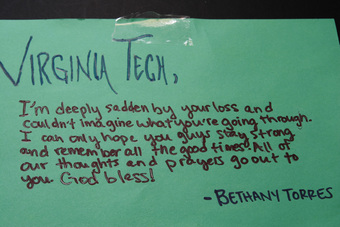 VIRGINIA TECH,
I'm deeply sadden by your loss and
couldn't imagine what you're going through.
I can only hope you guys stay strong
and remember all the good times. All of
our thoughts and prayers go out to
you. God bless!
- BETHANY TORRES